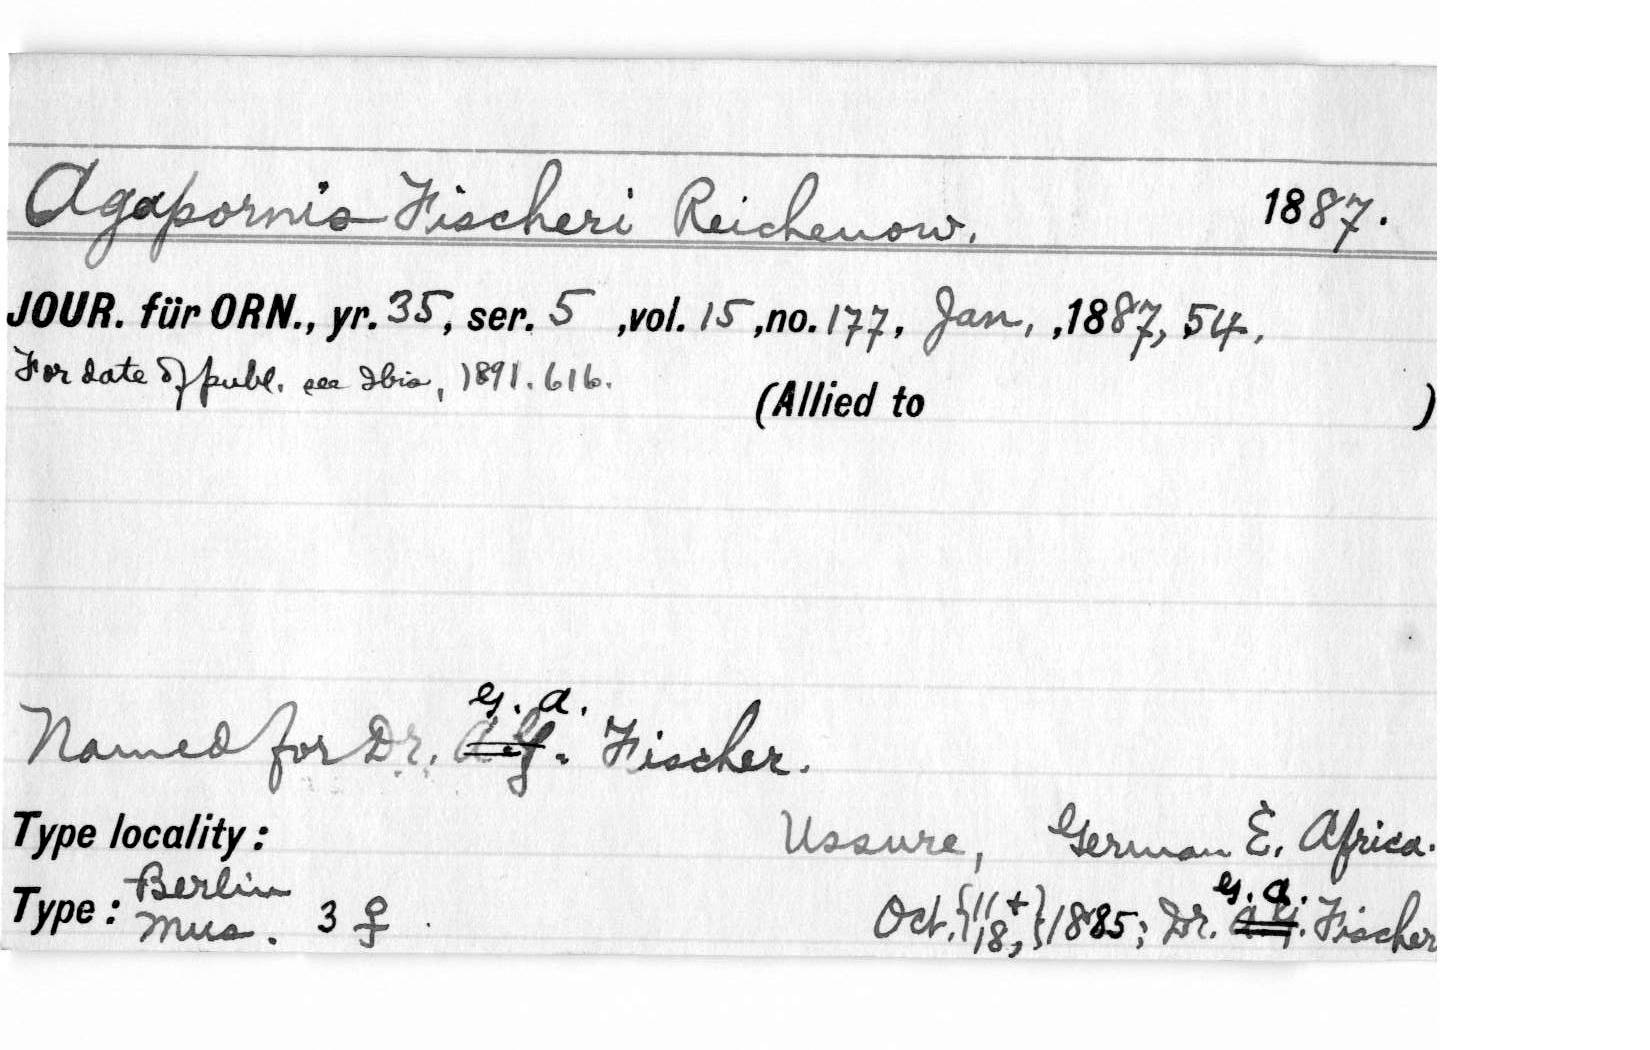 Agapornis Fischeri Reichenow. 1887.
JOUR. für ORN., yr. 35, ser. 5 ,vol. 15 ,no. 177, Jan., ,1887, 54.
For date of publ. see Ibis, 1891. 616.
(Allied to )
G. A.
Named for Dr. A. G. Fischer.
Type locality: Ussure, German E. Africa.
G. A.
Type: Berlin Mus. 3 ♀. Oct. {11 + 18,} 1885; Dr. A. G. Fischer